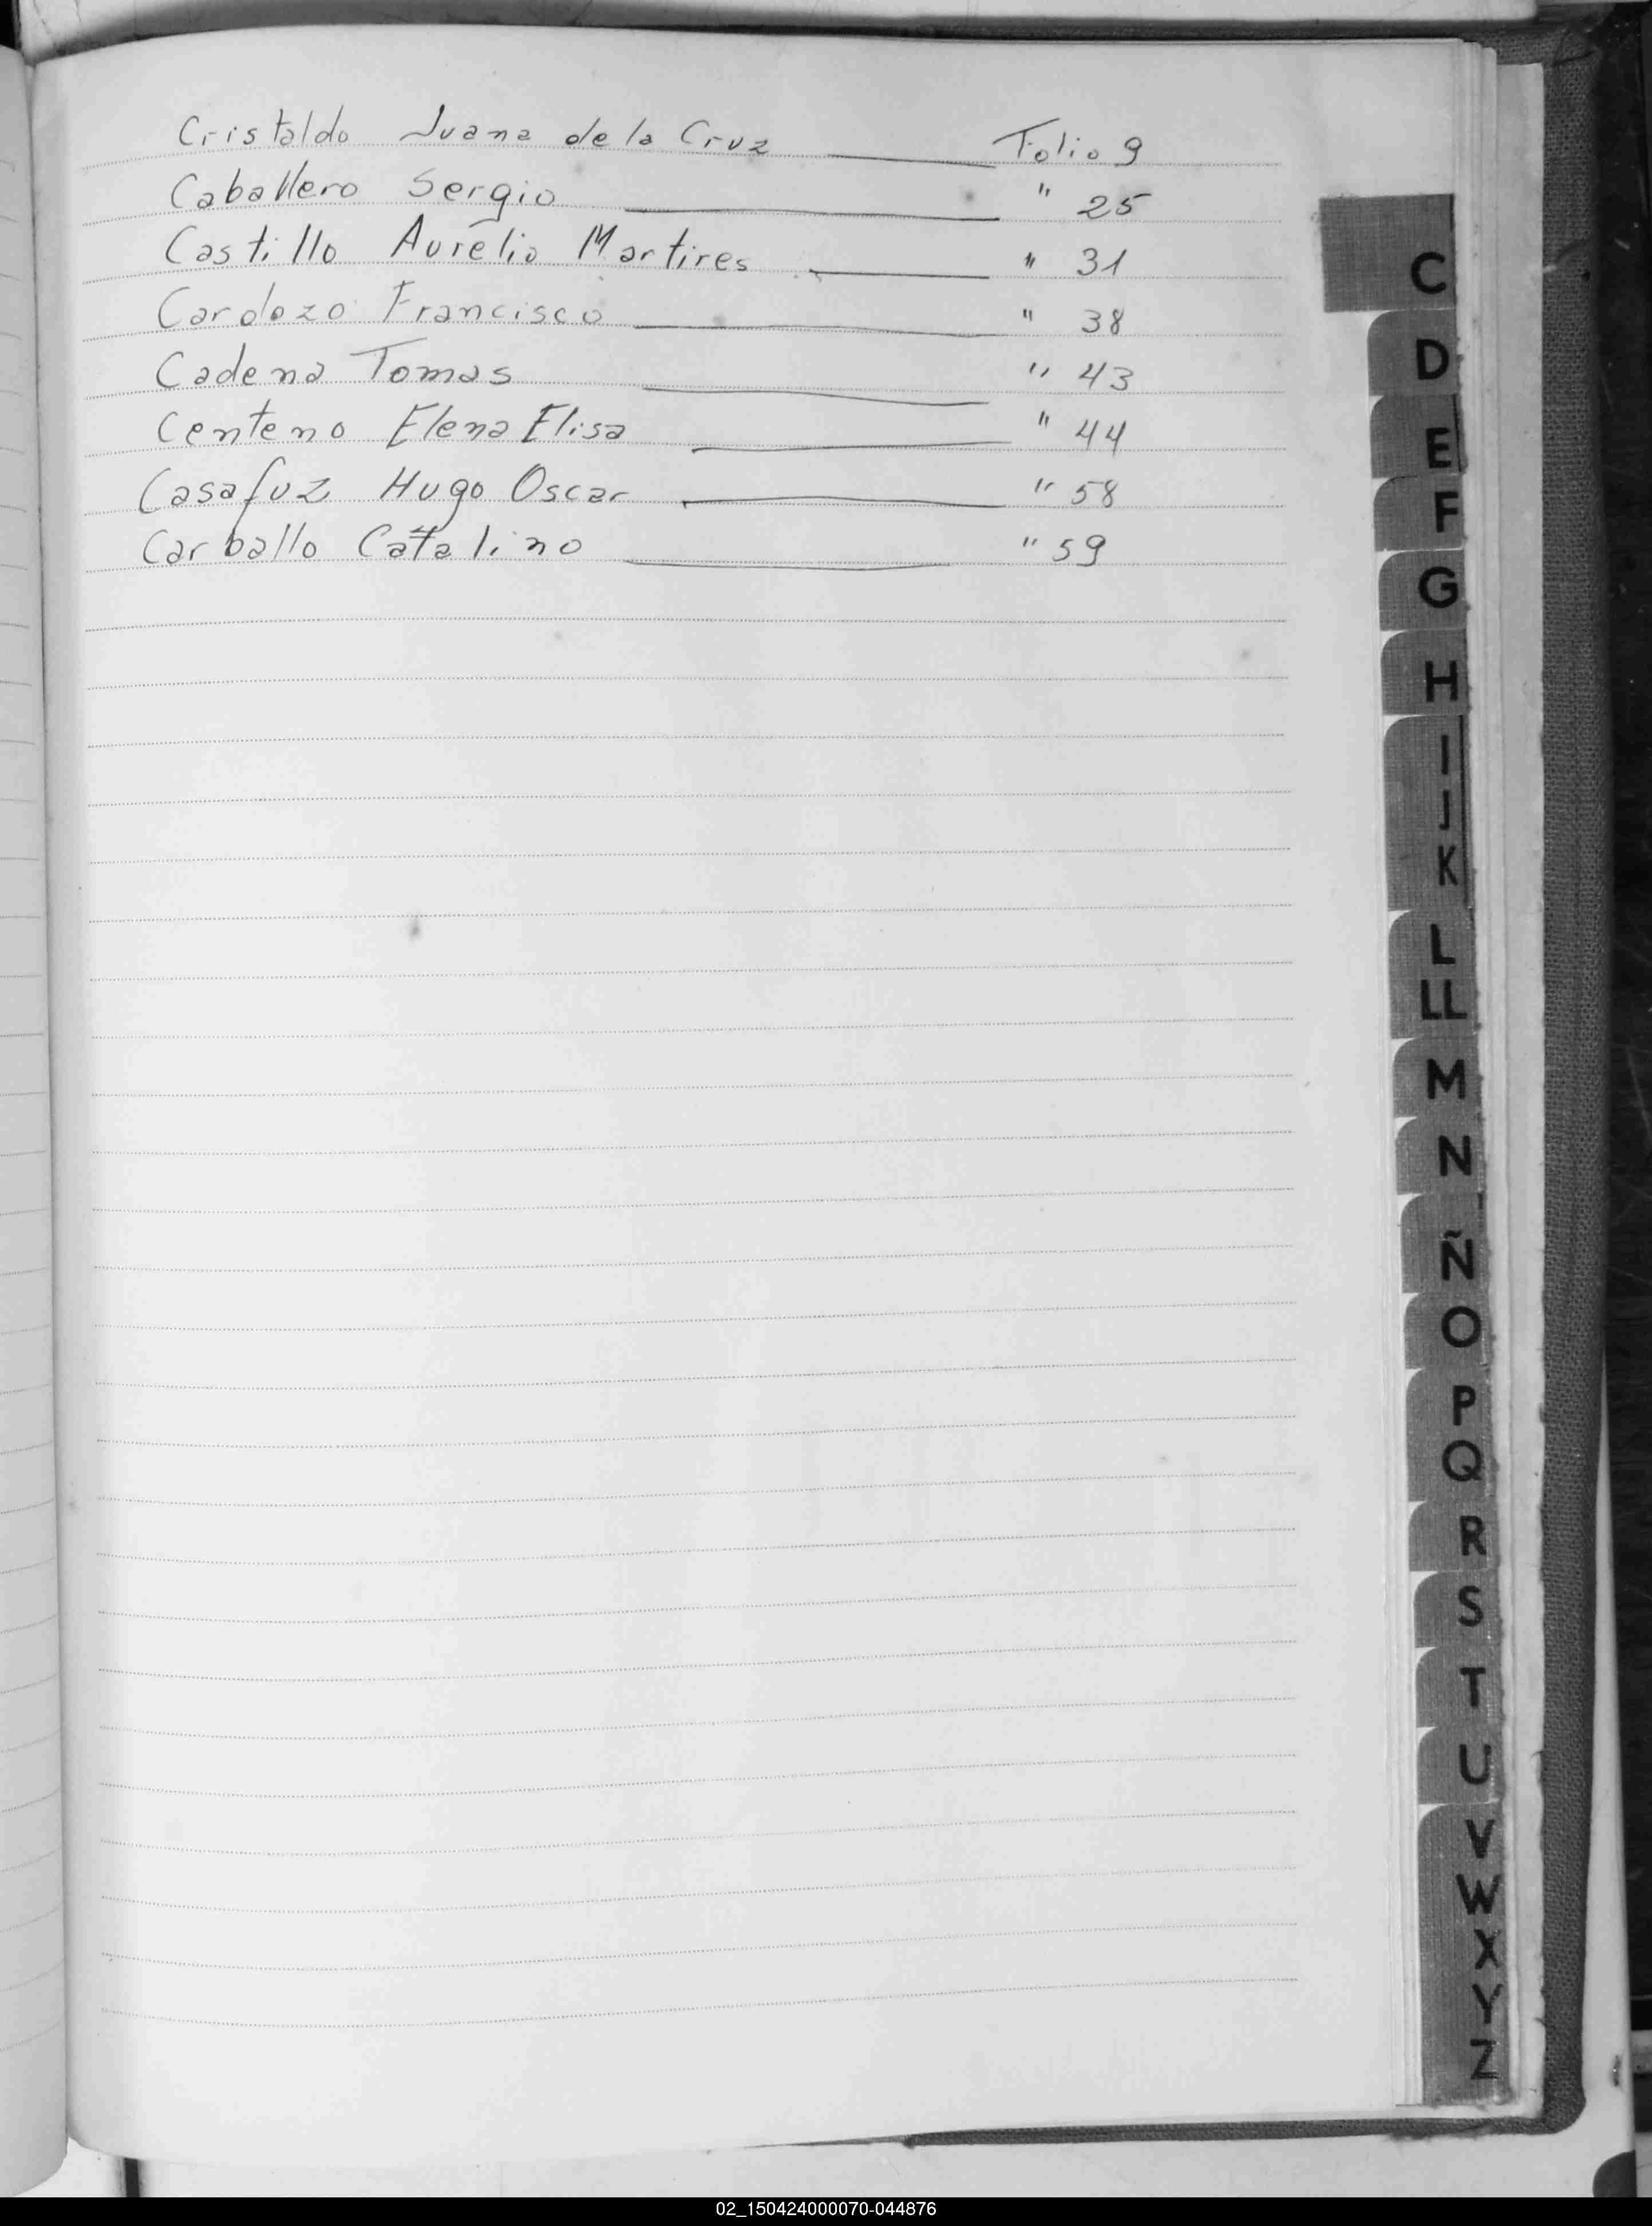 Cristaldo Juana de la Cruz Folio 9
Caballero Sergio " 25
Castillo Aurelio Martires " 31
Cardozo Francisco " 38
Cadena Tomas " 43
Centeno Elena Elisa " 44
Casafuz Hugo Oscar " 58
Carballo Catalino " 59
C
D
E
F
G
H
I
J
K
L
LL
M
N
Ñ
O
P
Q
R
S
T
U
V
W
X
Y
Z
02_150424000070-044876